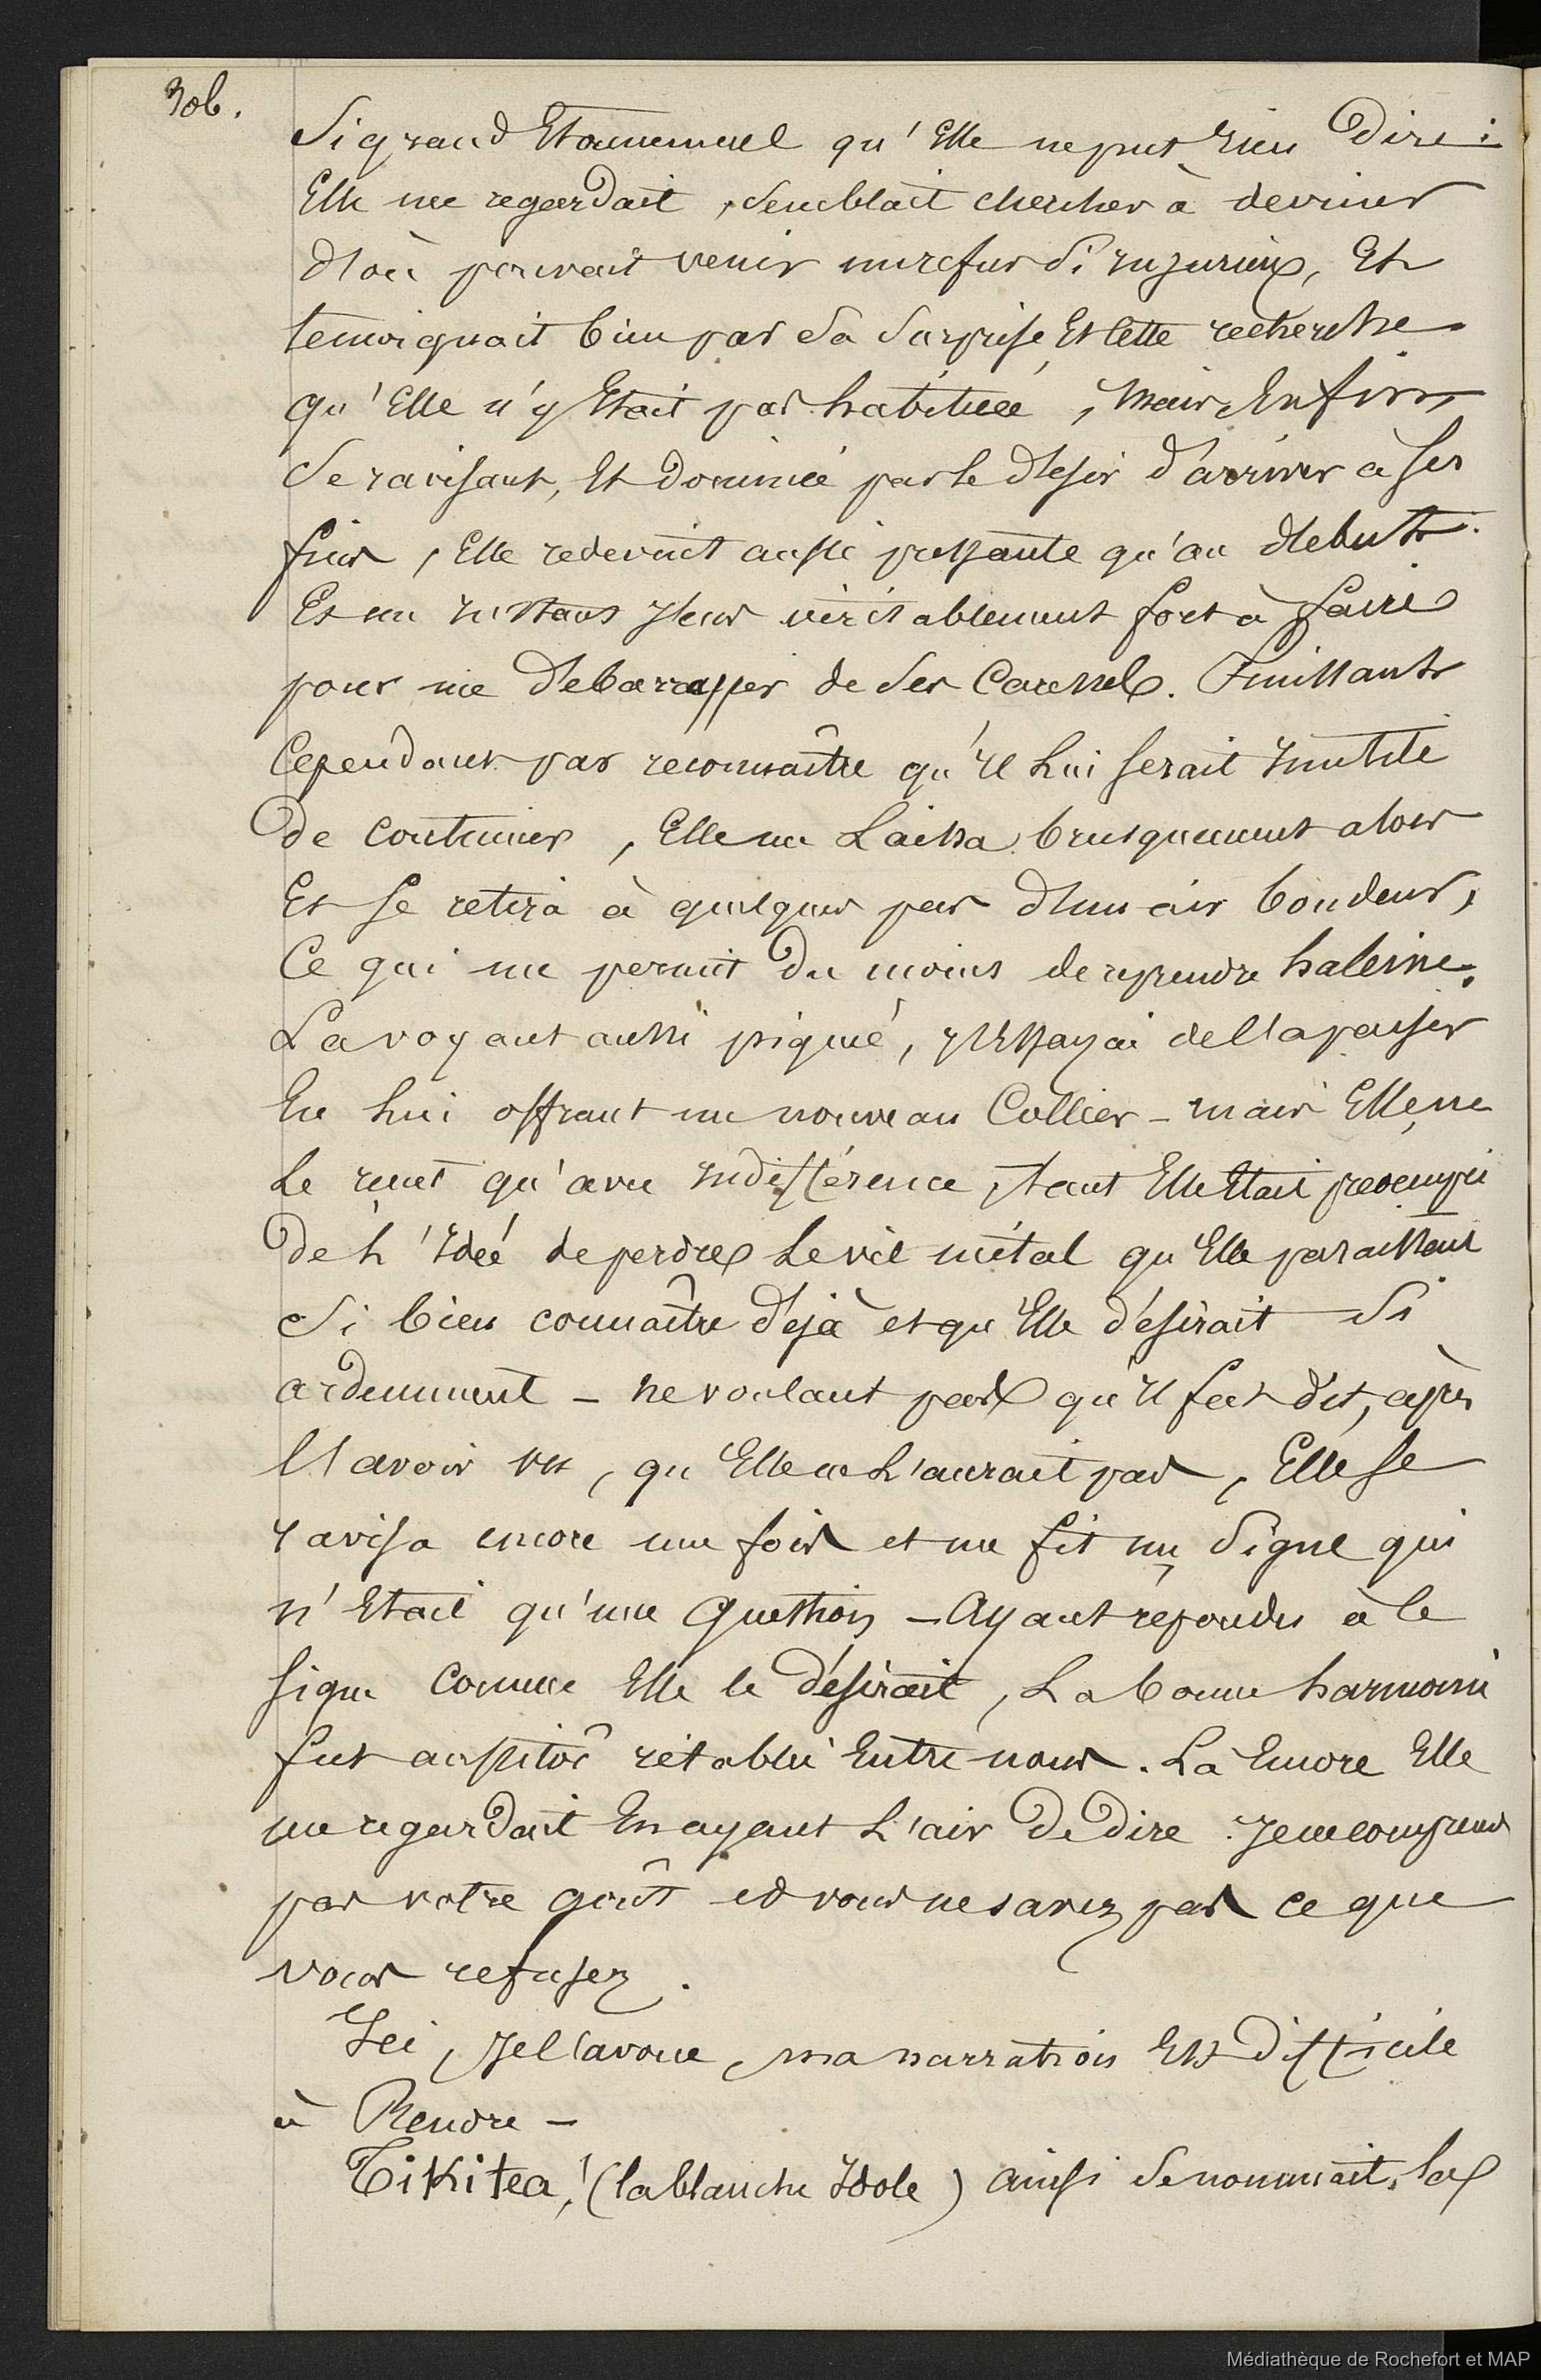 306.
Si grand Etonnement qu'Elle ne put rien Dire :
Elle me regardait, Semblait chercher à deviner
d'où pouvait venir un refus Si injurieux, Et
temoignait bien par Sa Surprise Et Cette recherche
qu'Elle n'y Etait pas habituée, Mais Enfin,
Se ravisant, Et Dominée par le desir d'arriver à Ses
fins, Elle redevint aussi pressante qu'au debut.
Et un instant J'eus véritablement fort à faire
pour me débarrasser de Ses Caresses. Finissant
Cependant par reconnaître qu'Il Lui Serait Inutile
De continuer, Elle me Laissa brusquement alors
Et Se retira à quelques pas d'un air boudeur,
Ce qui me permit Du moins de reprendre haleine.
La voyant aussi piqué, J'Essayai de l'apaiser
En Lui offrant un nouveau Collier - mais Elle ne
Le reçut qu'avec Indifférence, tant Elle Etait préoccupée
De L'Idée de perdre Le vil métal qu'Elle paraissait
Si bien connaître déjà et qu'Elle désirait Si
ardemment - ne voulant pas qu'Il fut dit, après
l'avoir vu, qu'Elle ne L'aurait pas, Elle Se
ravisa encore une fois et me fit un Signe qui
n'Etait qu'une Question - Ayant répondu à ce
Signe Comme Elle le Désirait, La bonne harmonie
fut aussitôt rétablie Entre nous. Là Encore Elle
me regardait En ayant L'air De Dire : Je ne comprends
pas votre goût et vous ne savez pas ce que
vous refusez.
Ici, Je l'avoue, ma narration Est Difficile
à Rendre -
Tikitea, (la blanche Idole) Ainsi Se nommait, la
Médiathèque de Rochefort et MAP